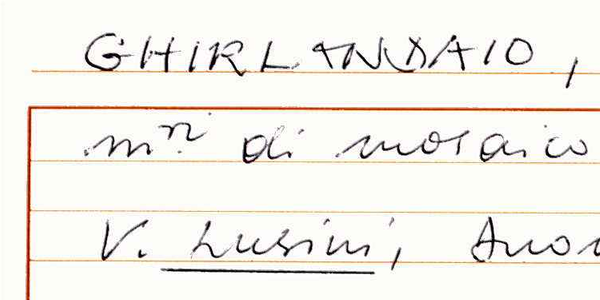 GHIRLANDAIO,
mri di mosaico
V. Lusini,